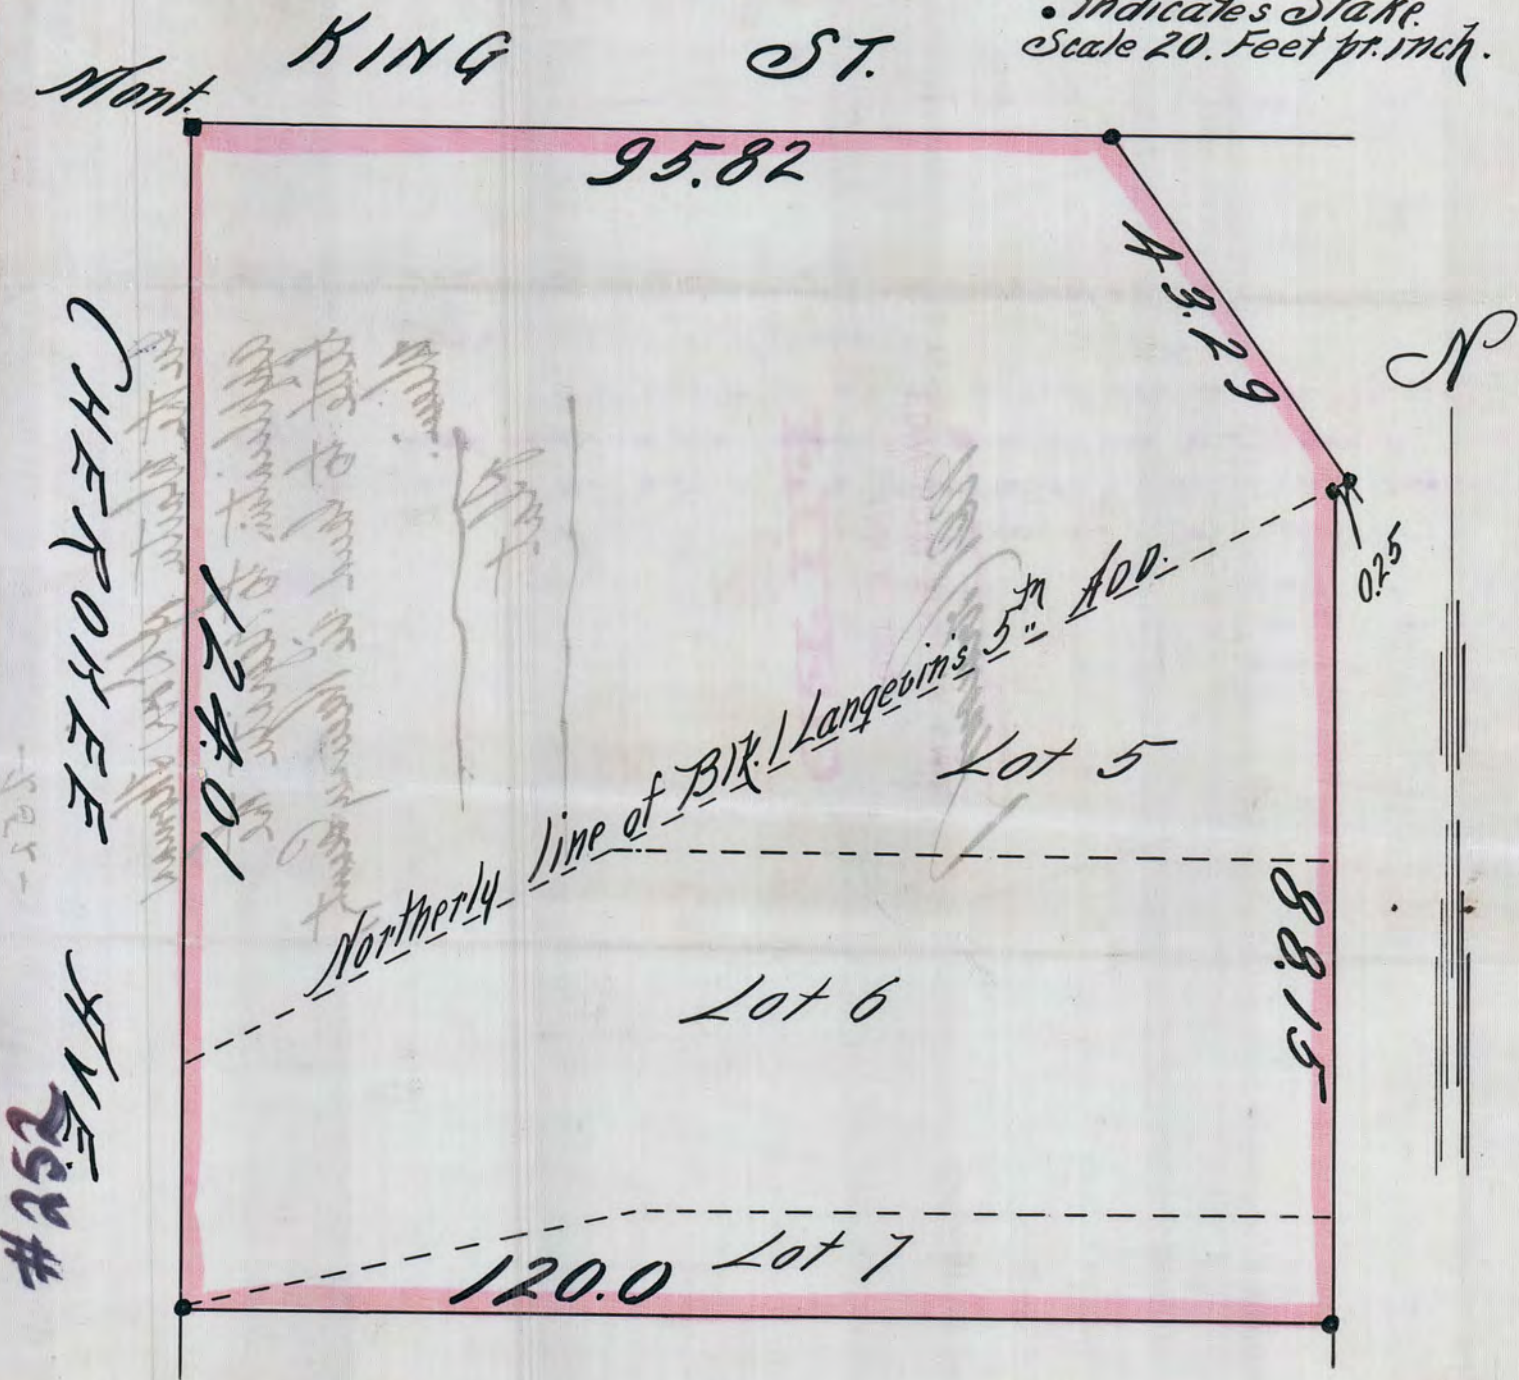 • Indicates Stake.
Scale 20. Feet pr. inch.
KING ST.
Mont.
95.82
43.29
N
0.25
CHEROKEE AVE
124.01
Northerly line of Blk. 1 Langevin's 5th ADD.
Lot 5
88.15
Lot 6
Lot 7
120.0
#252